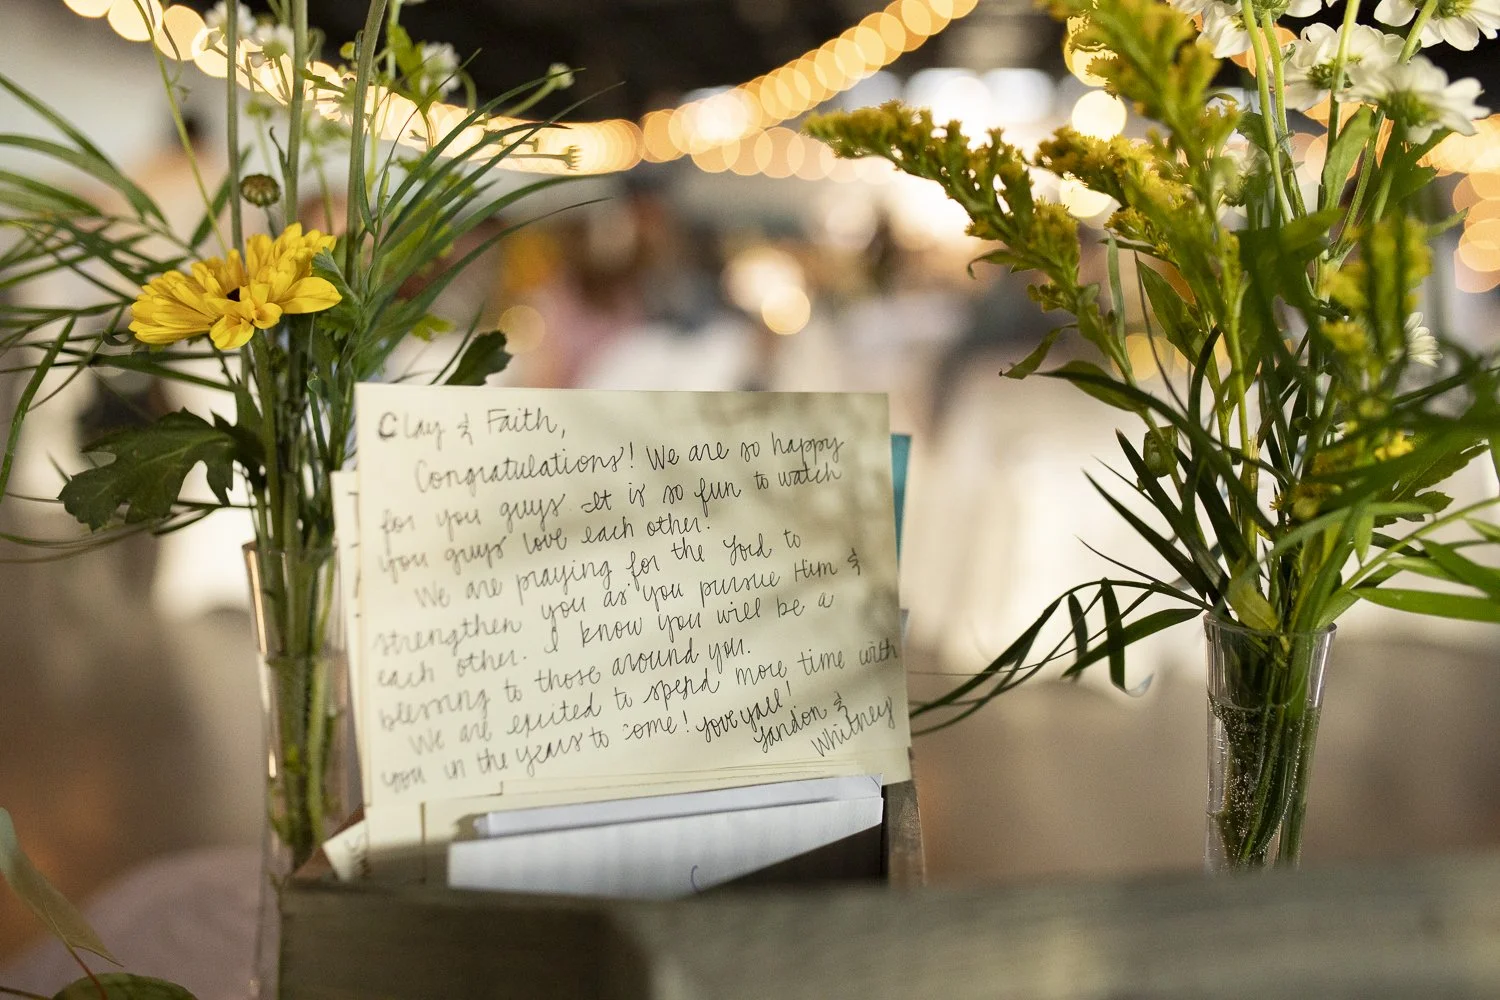 Clay & Faith,
Congratulations! We are so happy
for you guys. It is so fun to watch
you guys love each other.
We are praying for the Lord to
strengthen you as you pursue Him &
each other. I know you will be a
blessing to those around you.
We are excited to spend more time with
you in the years to come! Love yall!
Landon &
Whitney